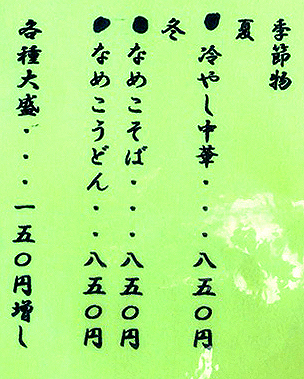 季節物
夏
●冷やし中華・・・八五〇円
冬
●なめこそば・・・八五〇円
●なめこうどん・・・八五〇円
各種大盛・・・一五〇円増し